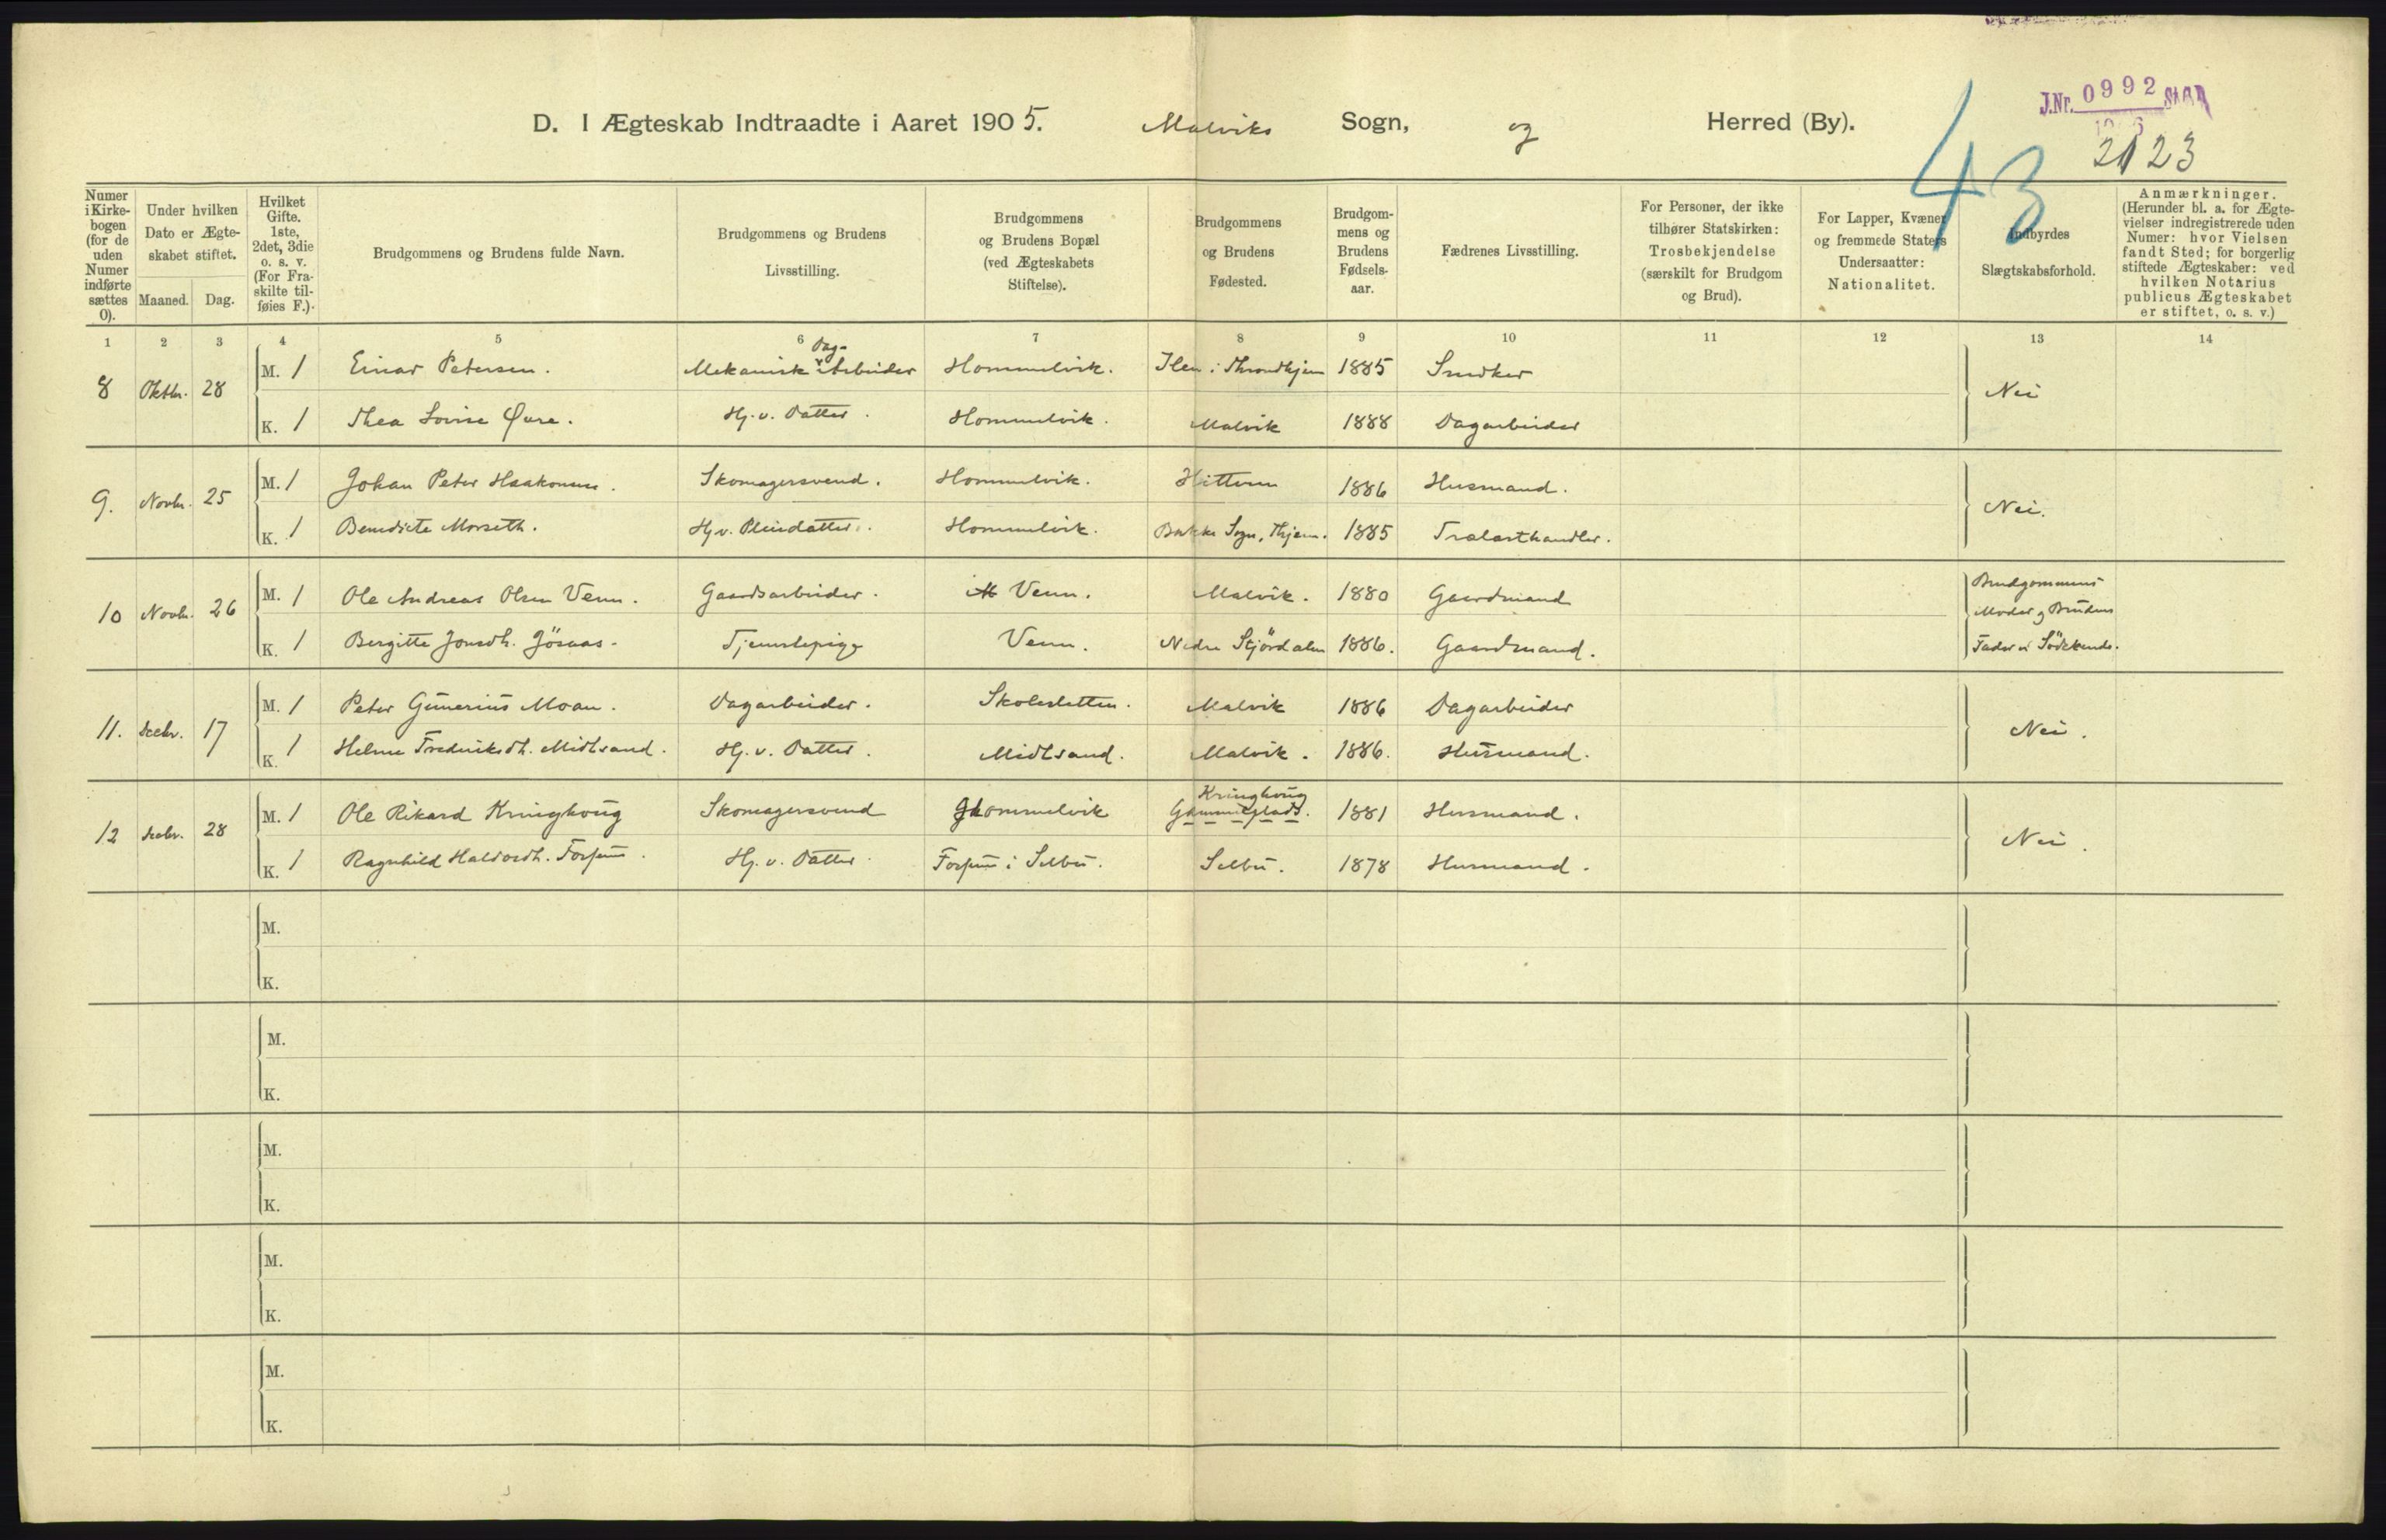 J.Nr. 0992
D. I Ægteskab Indtraadte i Aaret 1905. Malviks Sogn, og Herred (By).
43
2123
Numer i Kirke-bogen (for de uden Numer indførte sættes 0).
Under hvilken Dato er Ægte-skabet stiftet.
Maaned. Dag.
Hvilket Gifte. 1ste, 2det, 3die o. s. v. (For Fra-skilte til-føies F.).
Brudgommens og Brudens fulde Navn.
Brudgommens og Brudens Livsstilling.
Brudgommens og Brudens Bopæl (ved Ægteskabets Stiftelse).
Brudgommens og Brudens Fødested.
Brudgom-mens og Brudens Fødsels-aar.
Fædrenes Livsstilling.
For Personer, der ikke tilhører Statskirken: Trosbekjendelse (særskilt for Brudgom og Brud).
For Lapper, Kvæner og fremmede Staters Undersaatter: Nationalitet.
Indbyrdes Slægtskabsforhold.
Anmærkninger. (Herunder bl. a. for Ægte-vielser indregistrerede uden Numer: hvor Vielsen fandt Sted; for borgerlig stiftede Ægteskaber: ved hvilken Notarius publicus Ægteskabet er stiftet, o. s. v.)
1 2 3 4 5 6 7 8 9 10 11 12 13 14
8 Oktbr. 28 M. 1 Einar Petersen. Mekanisk Dag-Arbeider Hommelvik. Ilen i Throndhjem 1885 Snedker Nei
K. 1 Thea Lovise Øure. Hj. v. Datter. Hommelvik. Malvik 1888 Dagarbeider
9. Novbr. 25 M. 1 Johan Peter Haakonsen. Skomagersvend. Hommelvik. Hitteren 1886 Husmand. Nei.
K. 1 Benedicte Morseth. Hj. v. Pleiedatter. Hommelvik. Bakke Sogn, Thjem. 1885 Trælasthandler.
10 Novbr. 26 M. 1 Ole Andreas Olsen Venn. Gaardsarbeider. Venn. Malvik. 1880 Gaardmand Brudgommens Moder og Brudens Fader er Södskende.
K. 1 Bergitte Jonsdh. Jösaas. Tjenestepige Venn. Nedre Stjördalen 1886. Gaardmand.
11. Decbr. 17 M. 1 Peter Gunerius Moan. Dagarbeider. Skolesletten. Malvik 1886 Dagarbeider Nei.
K. 1 Helene Fredriksdh. Midtsand. Hj. v. Datter. Midtsand. Malvik. 1886. Husmand.
12 Decbr. 28 M. 1 Ole Rikard Kringhoug Skomagersvend Hommelvik Kringhoug 1881 Husmand. Nei.
K. 1 Ragnhild Haldorsdh. Fossum. Hj. v. Datter. Fossum i Selbu. Selbu. 1878 Husmand.
M.
K.
M.
K.
M.
K.
M.
K.
M.
K.